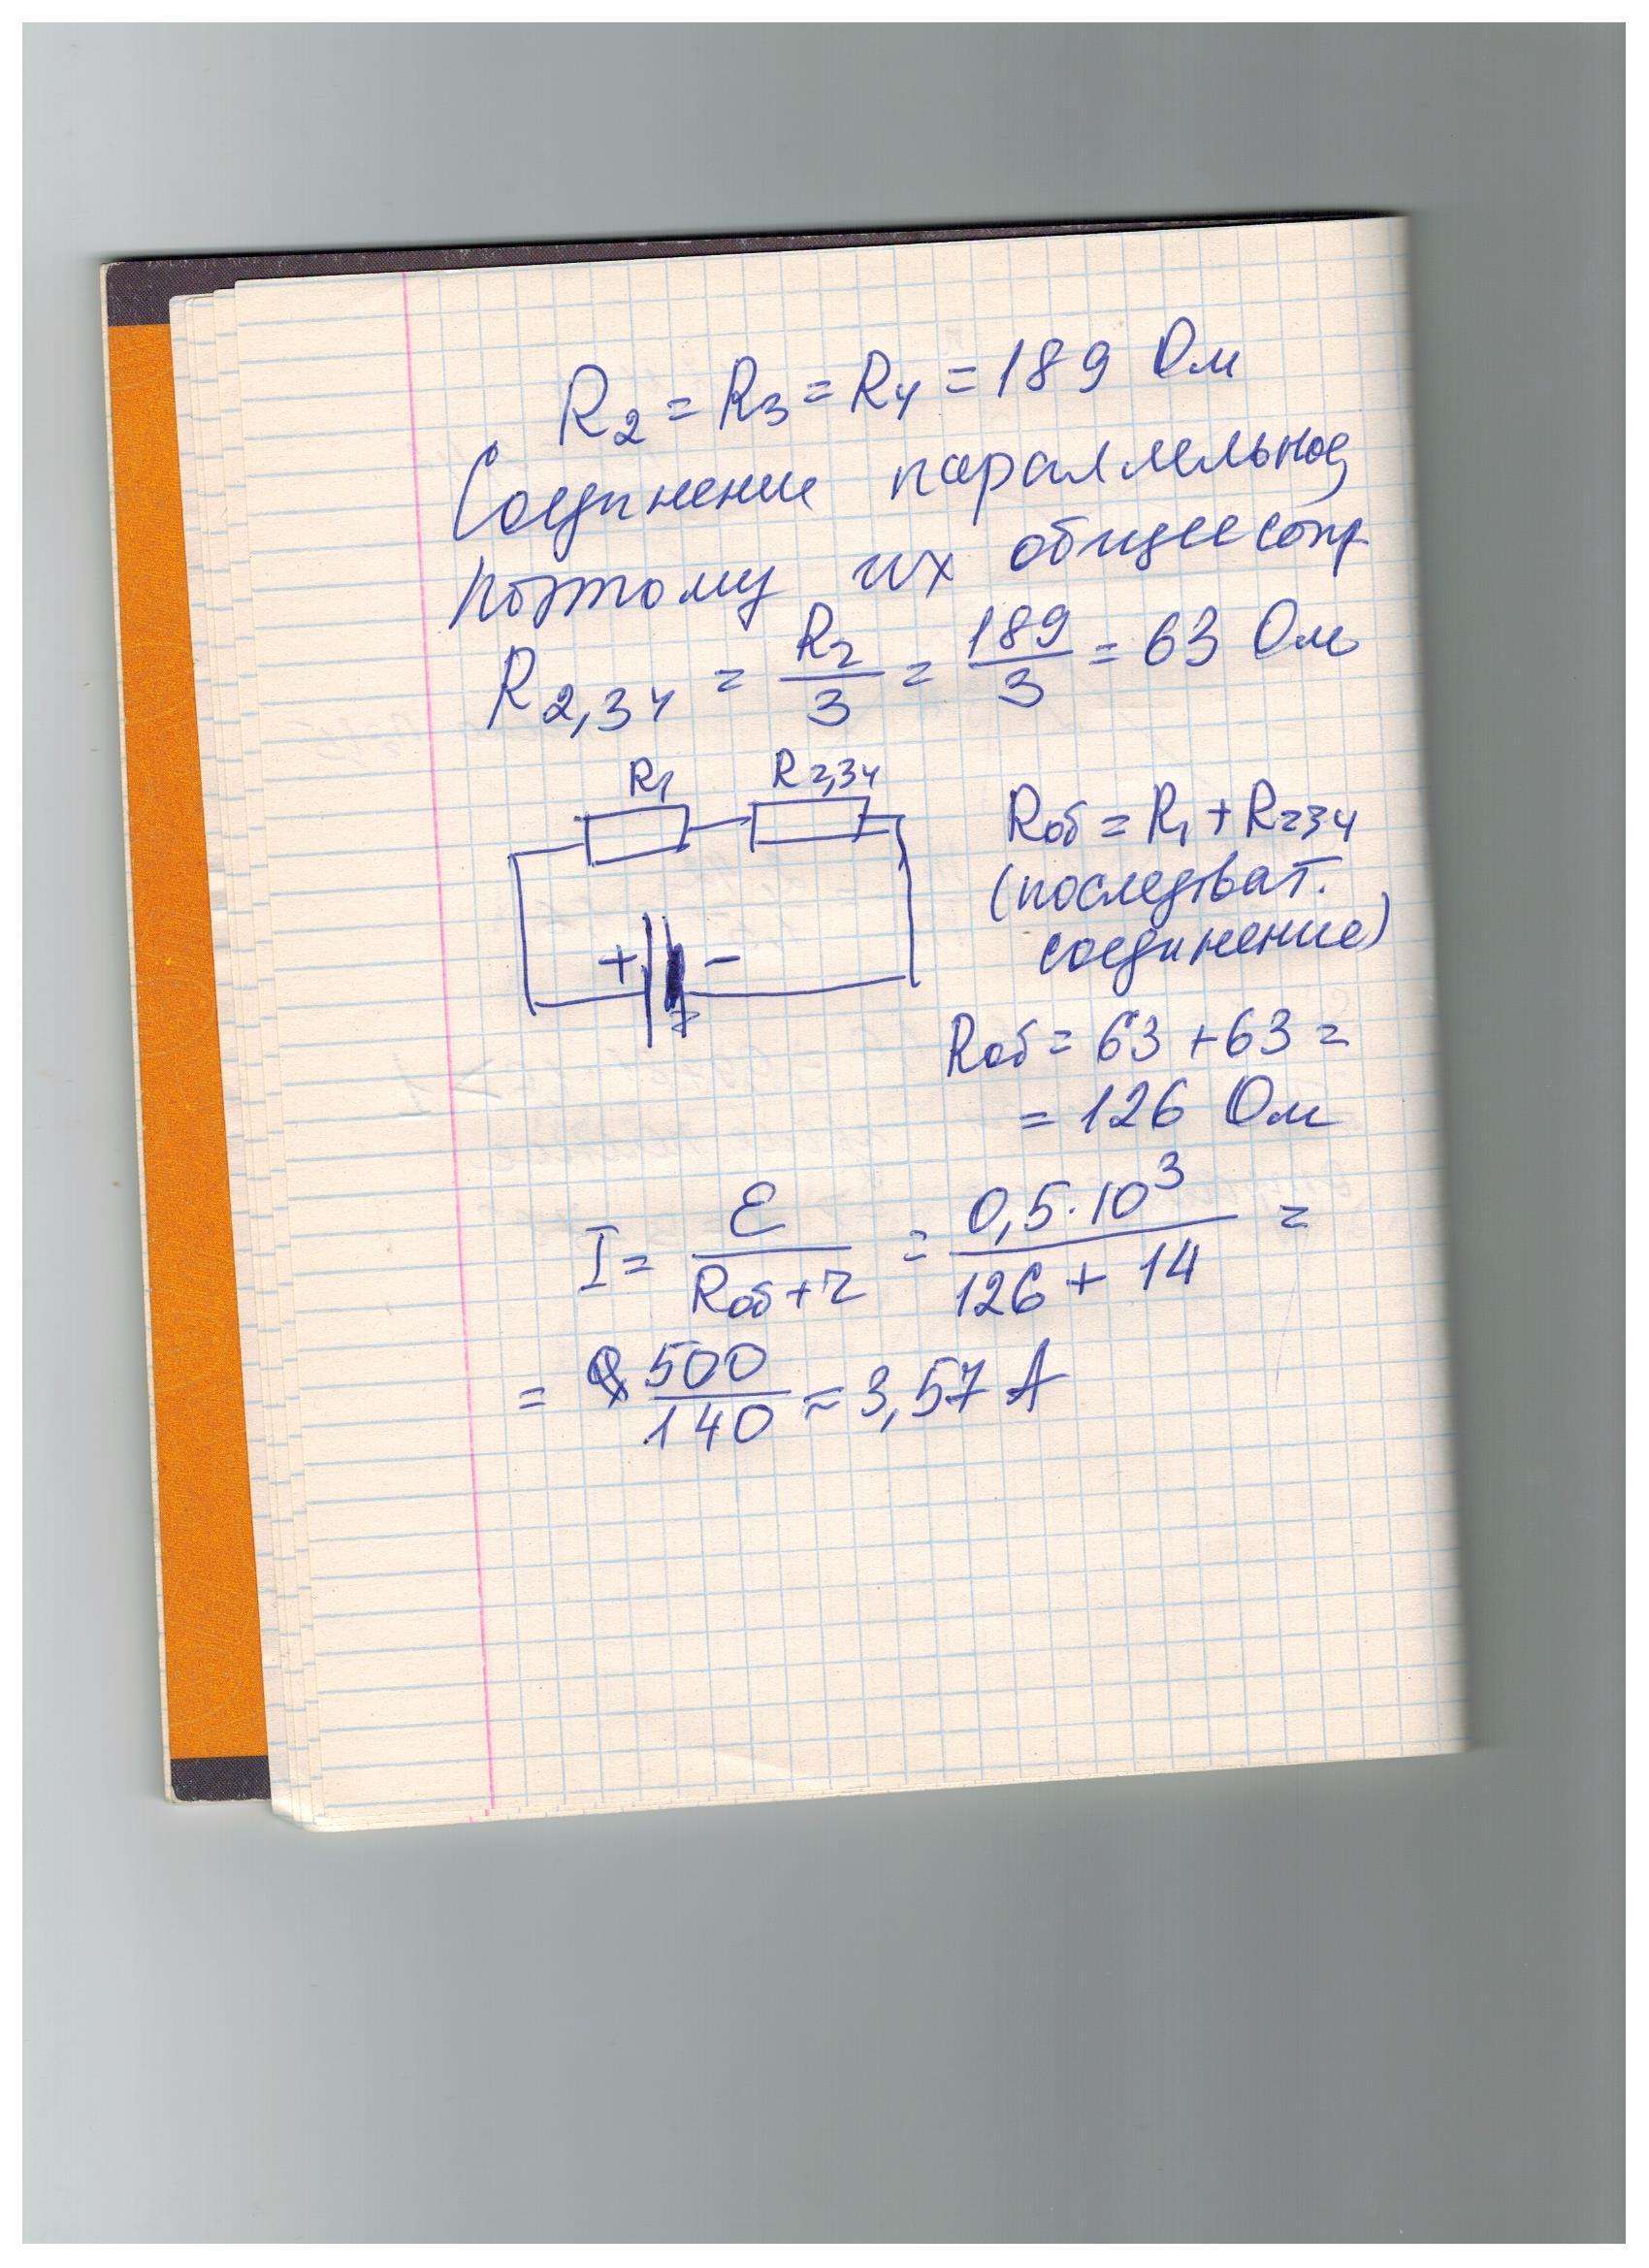 R2 = R3 = R4 = 189 Ом
Соединение параллельное,
поэтому их общее сопр
R2,34 = R2/3 = 189/3 = 63 Ом
R1 R2,34
Rоб = R1 + R234
(последоват.
соединение)
+ -
Rоб = 63 + 63 =
= 126 Ом
I = ε/(Rоб + r) = 0,5·10³/(126 + 14) =
= 500/140 ≈ 3,57 А